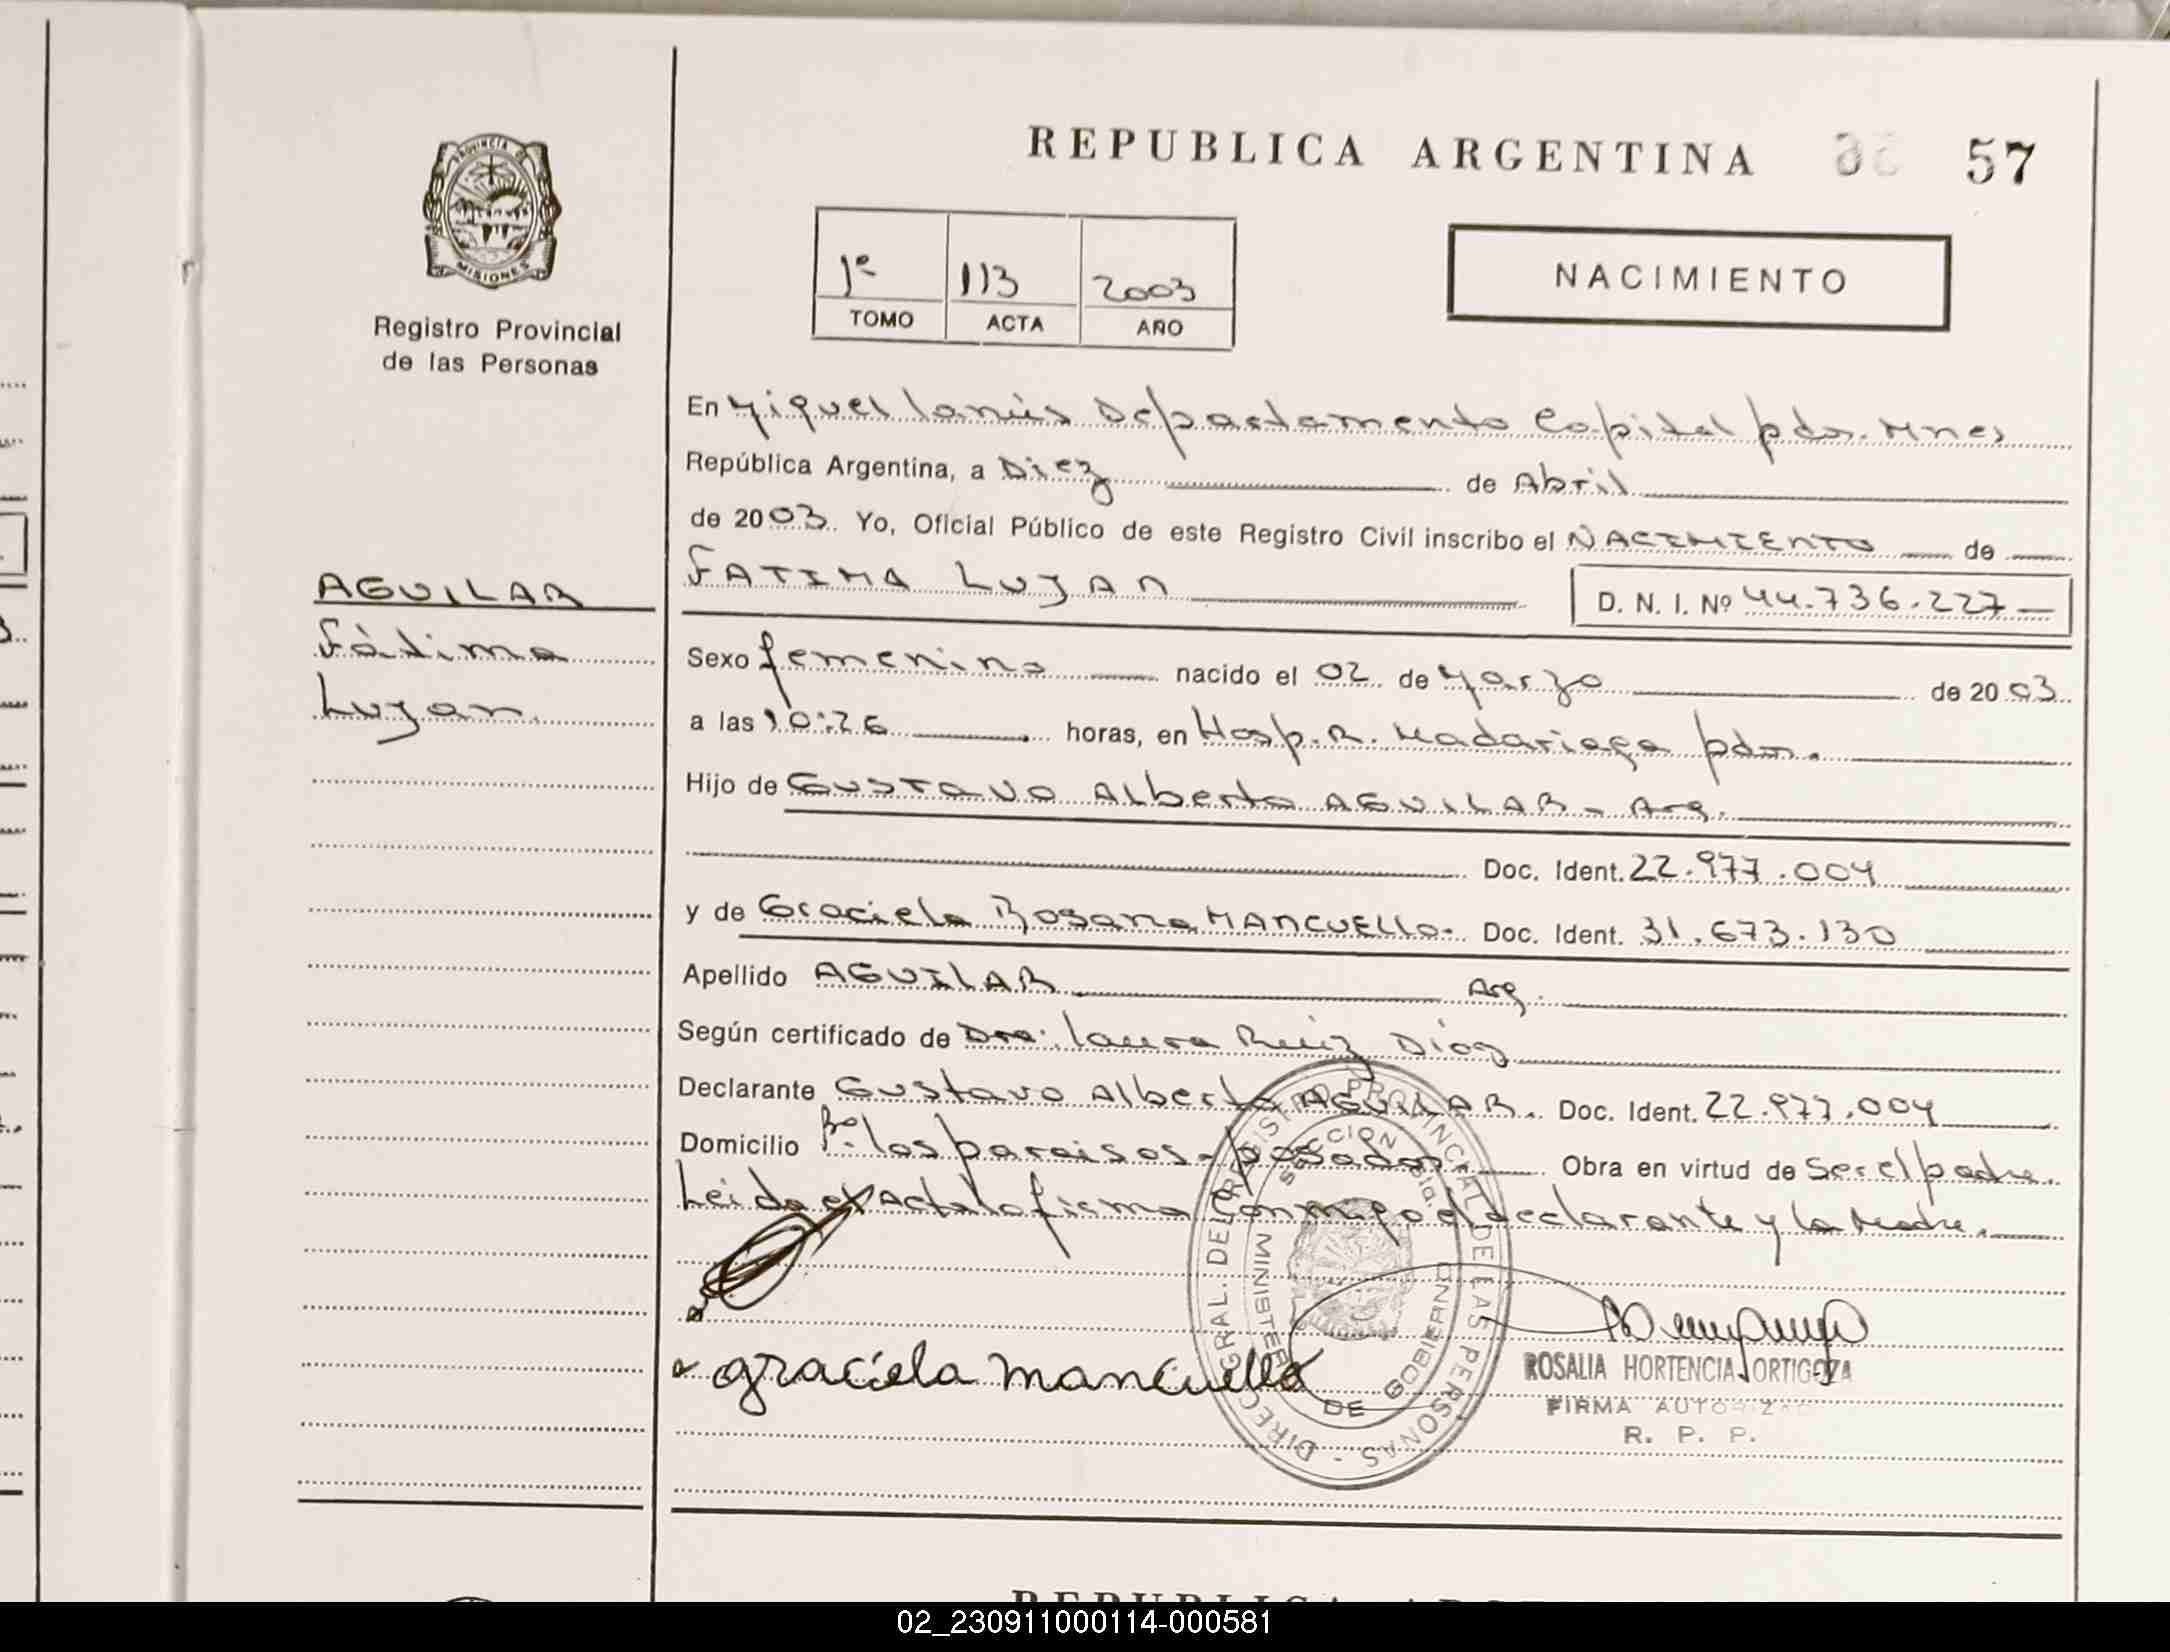 REPUBLICA ARGENTINA 57
PROVINCIA DE
MISIONES
Registro Provincial
de las Personas
1º 113 2003
TOMO ACTA AÑO
NACIMIENTO
En Miguel Lanús Departamento Capital pdas. Mnes
República Argentina, a Diez de Abril
de 2003. Yo, Oficial Público de este Registro Civil inscribo el NACIMIENTO de
FATIMA LUJAN D. N. I. Nº 44.736.227
AGUILAR
Fátima
Lujan
Sexo femenino nacido el 02 de Marzo de 2003
a las 10:26 horas, en Hosp. R. Madariaga pdas.
Hijo de GUSTAVO Alberto AGUILAR - Arg.
Doc. Ident. 22.977.004
y de Graciela Rosana MANCUELLO. Doc. Ident. 31.673.130
Apellido AGUILAR Arg.
Según certificado de Dra: Laura Ruiz Diaz
Declarante Gustavo Alberto AGUILAR. Doc. Ident. 22.977.004
Domicilio Bº. los paraisos - posadas. Obra en virtud de Ser el padre.
Leida el Acta la firma Conmigo el declarante y la Madre.
DIREC. GRAL. DEL REGISTRO PROVINCIAL DE LAS PERSONAS
SECCION
MINISTERIO DE GOBIERNO
graciela mancuello
ROSALIA HORTENCIA ORTIGOZA
FIRMA AUTORIZADA
R. P. P.
02_230911000114-000581